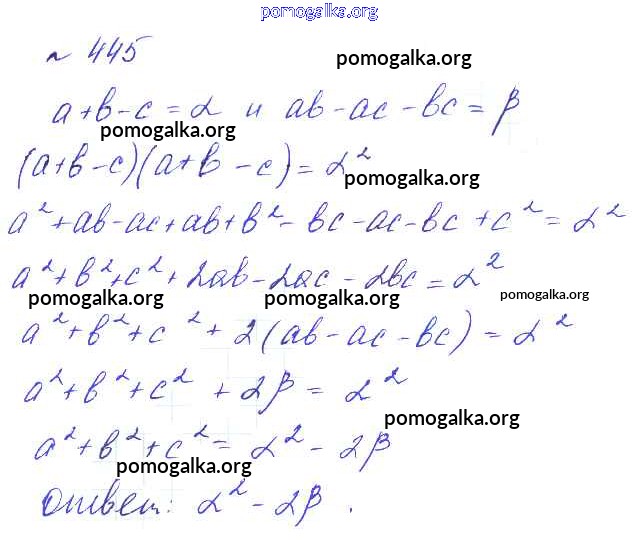 pomogalka.org
№ 445
pomogalka.org
a+b-c=α и ab-ac-bc=β
pomogalka.org
(a+b-c)(a+b-c)=α²
pomogalka.org
a²+ab-ac+ab+b²-bc-ac-bc+c²=α²
a²+b²+c²+2ab-2ac-2bc=α²
pomogalka.org pomogalka.org pomogalka.org
a²+b²+c²+2(ab-ac-bc)=α²
a²+b²+c²+2β=α²
pomogalka.org
a²+b²+c²=α²-2β
pomogalka.org
Ответ: α²-2β.